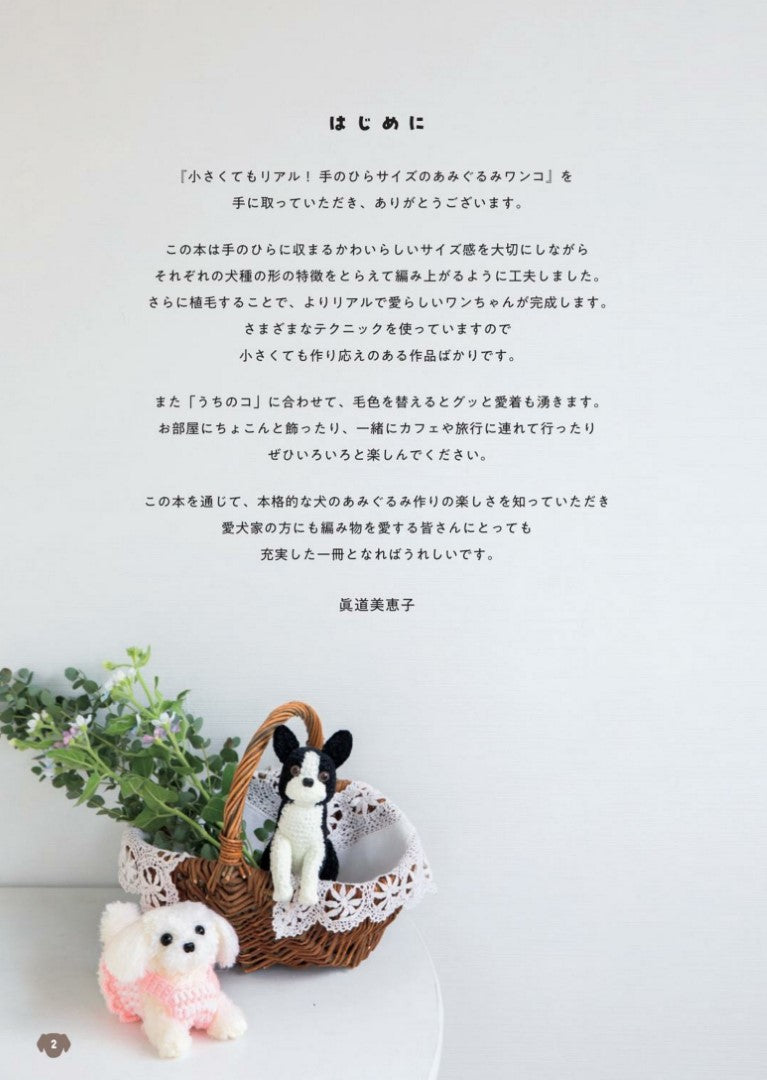 はじめに
『小さくてもリアル！ 手のひらサイズのあみぐるみワンコ』を
手に取っていただき、ありがとうございます。
この本は手のひらに収まるかわいらしいサイズ感を大切にしながら
それぞれの犬種の形の特徴をとらえて編み上がるように工夫しました。
さらに植毛することで、よりリアルで愛らしいワンちゃんが完成します。
さまざまなテクニックを使っていますので
小さくても作り応えのある作品ばかりです。
また「うちのコ」に合わせて、毛色を替えるとグッと愛着も湧きます。
お部屋にちょこんと飾ったり、一緒にカフェや旅行に連れて行ったり
ぜひいろいろと楽しんでください。
この本を通じて、本格的な犬のあみぐるみ作りの楽しさを知っていただき
愛犬家の方にも編み物を愛する皆さんにとっても
充実した一冊となればうれしいです。
眞道美恵子
2